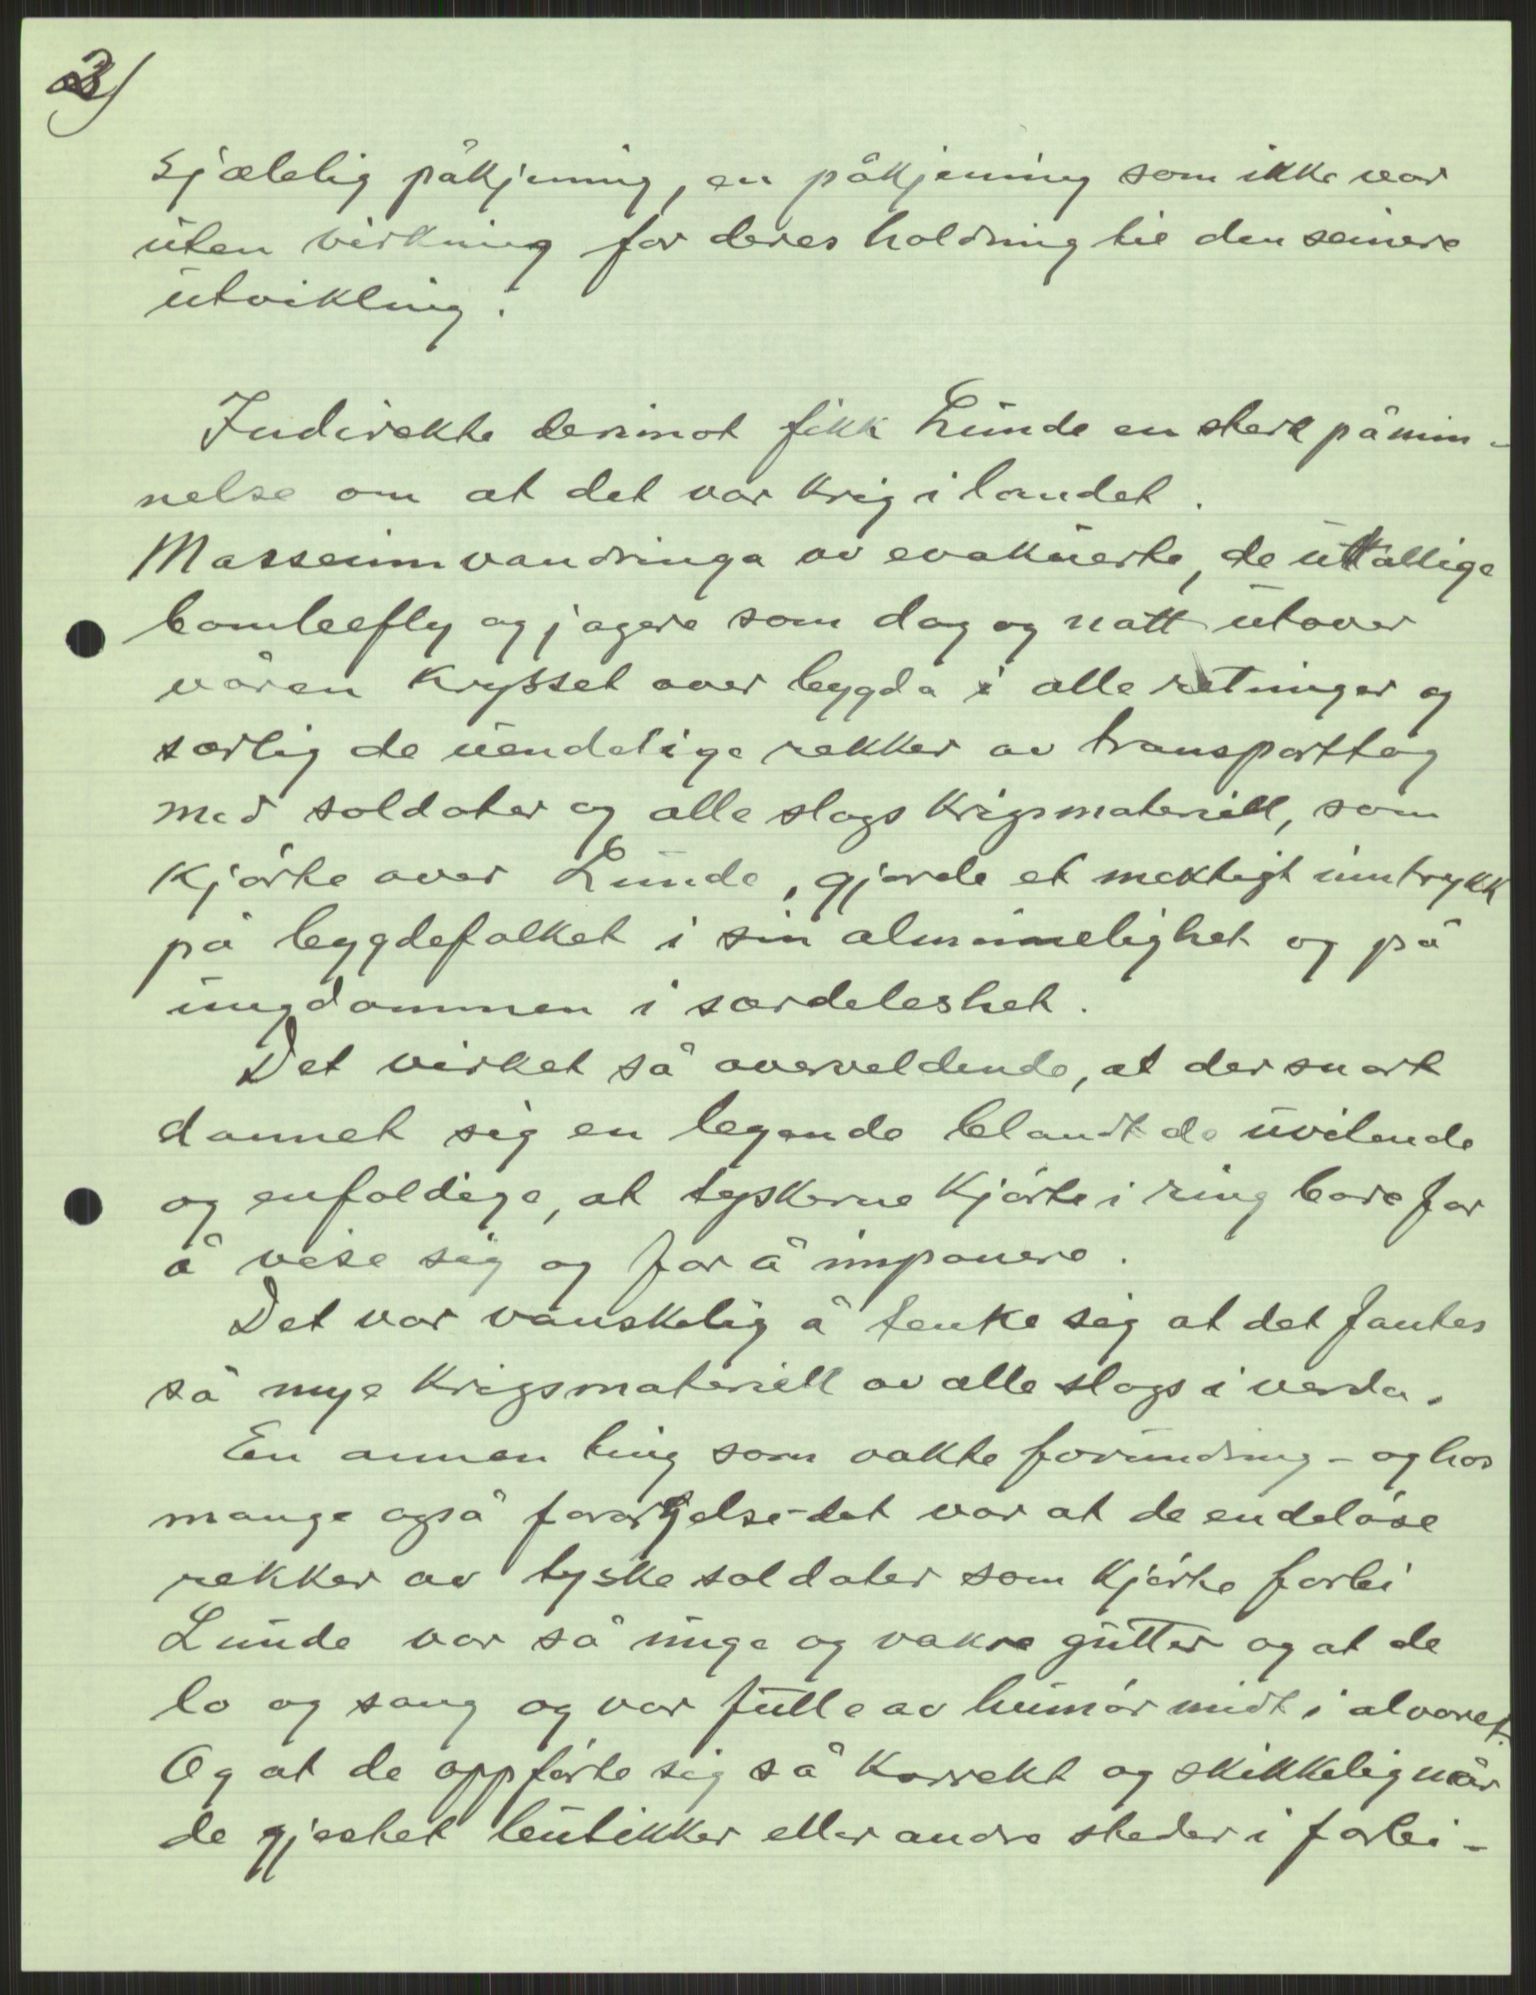 3)
sjælelig påkjenning, en påkjenning som ikke var
uten virkning for deres holdning til den seinere
utvikling.
Indirekte derimot fikk Lunde en sterk påmin-
nelse om at det var krig i landet.
Masseinnvandringa av evakuerte, de utallige
bombefly og jagere som dag og natt utover
våren krysset over bygda i alle retninger og
særlig de uendelige rekker av transporttog
med soldater og alle slags krigsmateriell, som
kjørte over Lunde, gjorde et mektigt inntrykk
på bygdefolket i sin alminnelighet og på
ungdommen i særdeleshet.
Det virket så overveldende, at der snart
dannet sig en legende blandt de uvitende
og enfoldige, at tyskerne kjørte i ring bare for
å vise sig og for å imponere.
Det var vanskelig å tenke sig at det fantes
så mye krigsmateriell av alle slags i verda.
En annen ting som vakte forundring - og hos
mange også forargelse - det var at de endeløse
rekker av tyske soldater som kjørte forbi
Lunde var så unge og vakre gutter og at de
lo og sang og var fulle av humør midt i alvoret.
Og at de oppførte sig så korrekt og skikkelig når
de gjestet butikker eller andre steder i forbi-